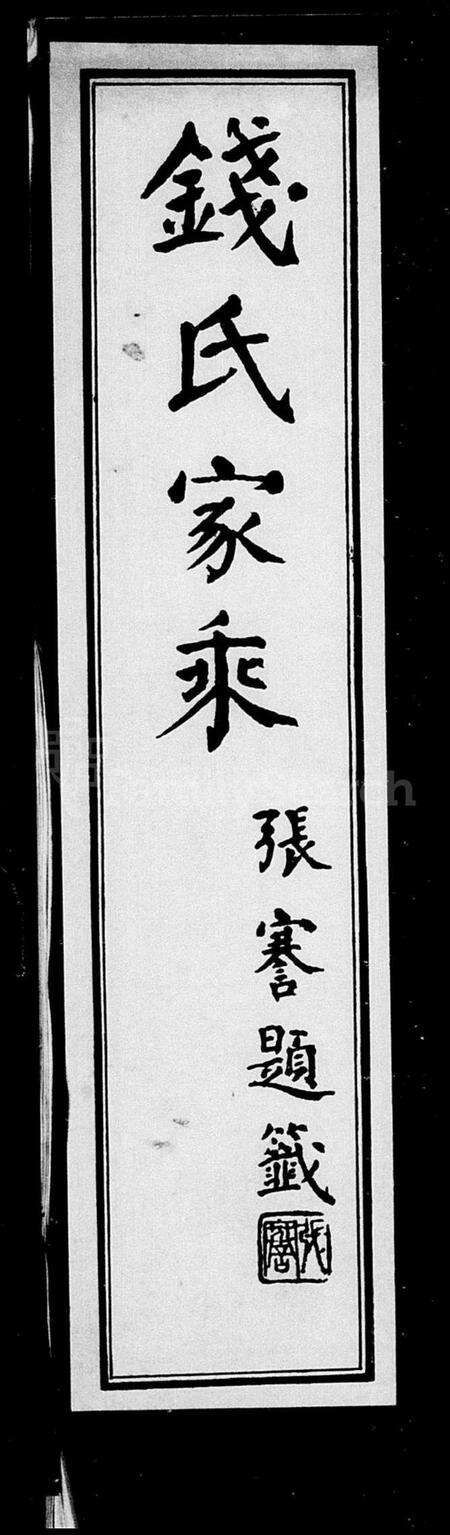 錢氏家乘
張謇題籤
張謇